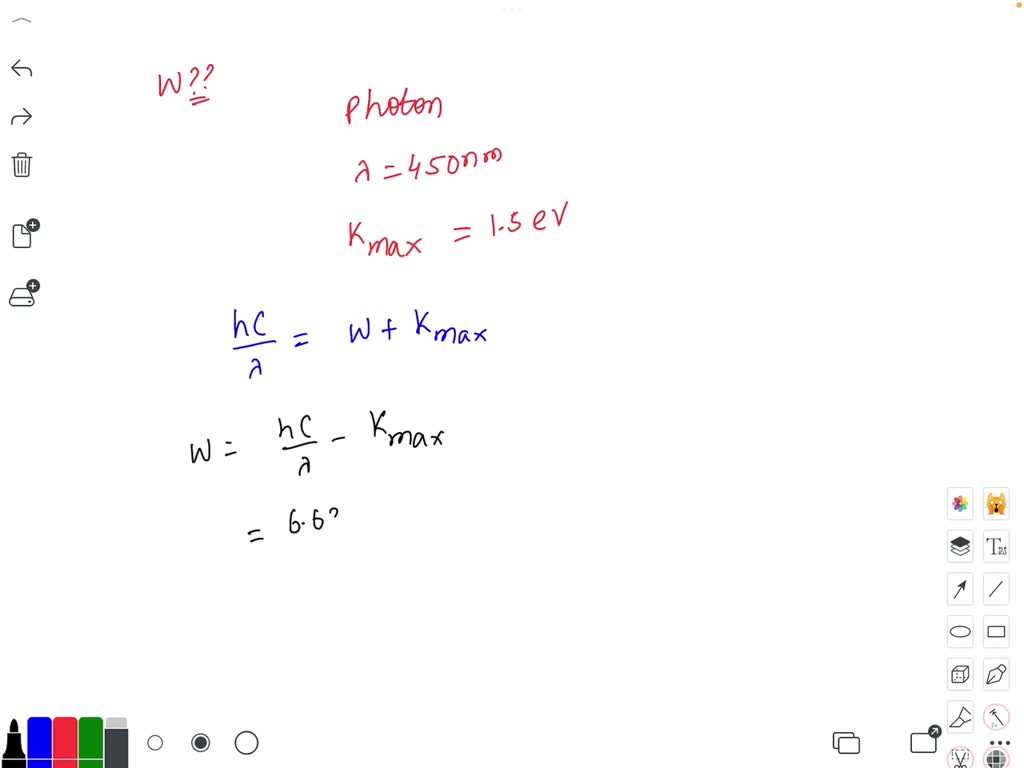 W??
Photon
λ = 450nm
Kmax = 1.5 eV
hC/λ = W + Kmax
W = hC/λ - Kmax
= 6.6